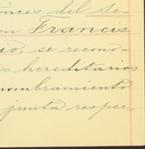 onces del Se
on Francis
io, se recono
s hereditarios
nombramiento
junta respec